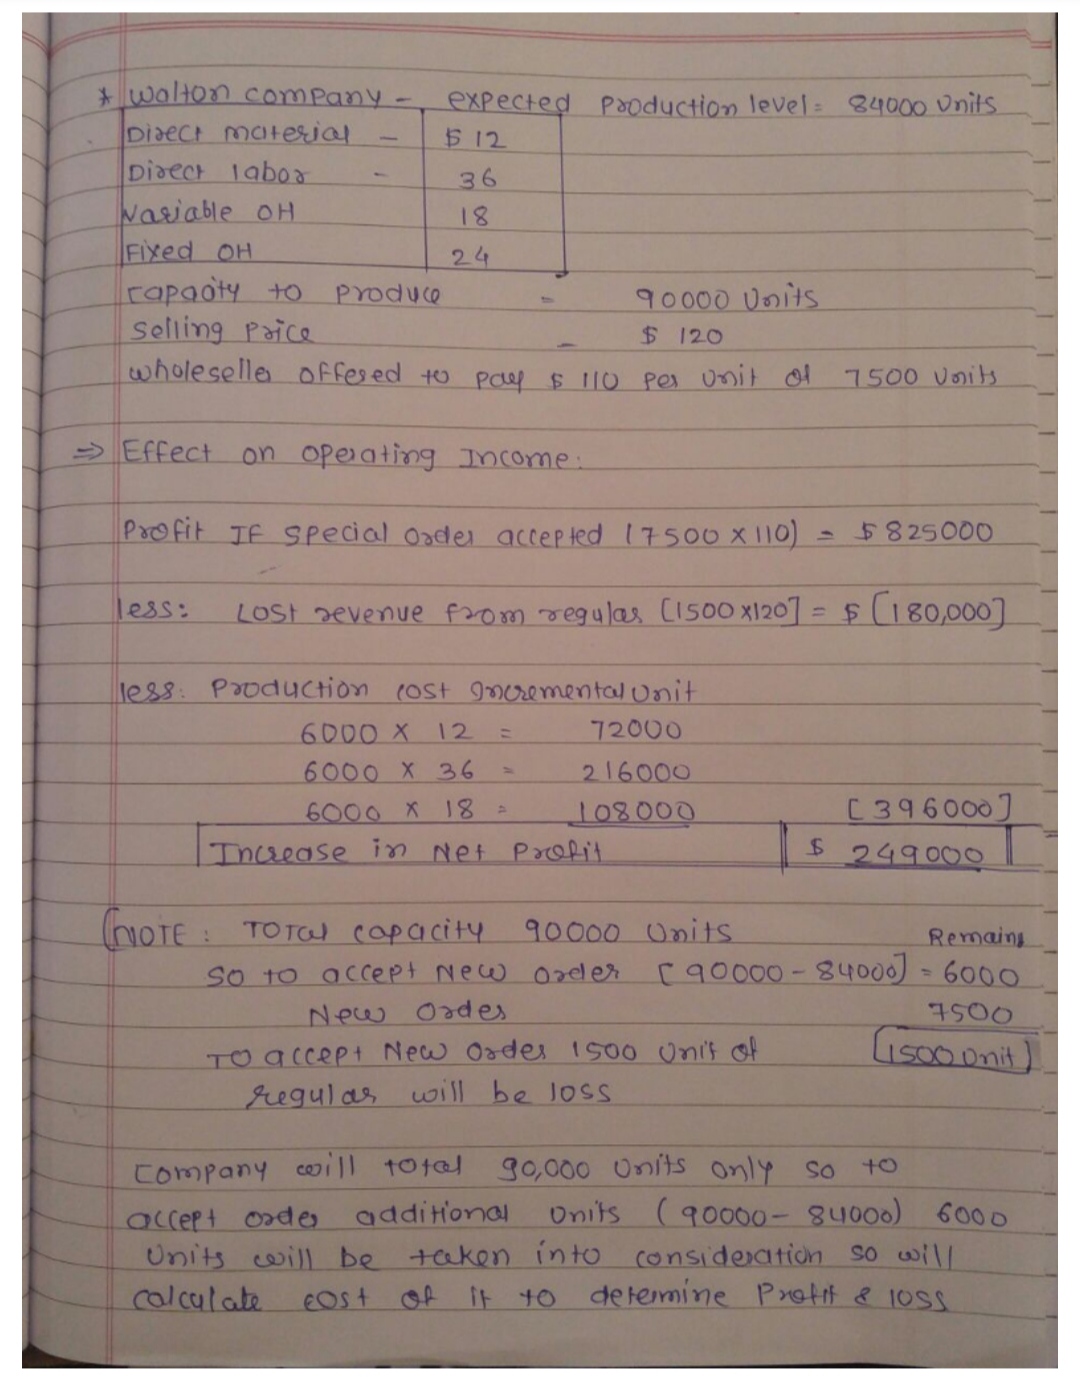 * Walton company - expected production level = 84000 Units
Direct material - $ 12
Direct labor - 36
Variable OH 18
Fixed OH 24
capacity to produce = 90000 Units
Selling Price - $ 120
wholeseller offered to pay $ 110 per unit of 7500 Units
⇒ Effect on operating Income:
Profit IF special order accepted (7500 x 110) = $ 825000
less: Lost revenue from regular [1500 x120] = $ [180,000]
less: Production cost Incremental Unit
6000 x 12 = 72000
6000 x 36 = 216000
6000 x 18 = 108000 [396000]
Increase in Net Profit $ 249000
NOTE : Total capacity 90000 Units Remaining
so to accept New order [90000 - 84000] = 6000
New order 7500
To accept New order 1500 Unit of [1500 Unit]
regular will be loss
Company will total 90,000 Units only so to
accept order additional Units (90000 - 84000) 6000
Units will be taken into consideration so will
calculate cost of it to determine Profit & loss